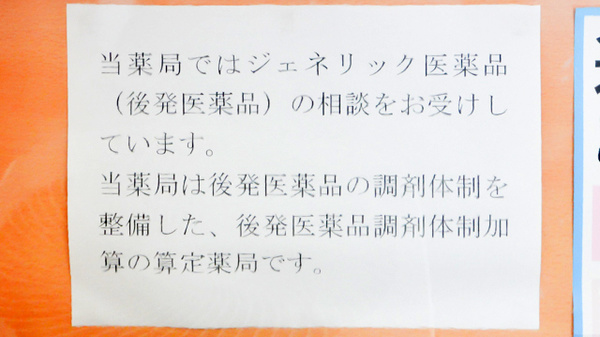 当薬局ではジェネリック医薬品
（後発医薬品）の相談をお受けし
ています。
当薬局は後発医薬品の調剤体制を
整備した、後発医薬品調剤体制加
算の算定薬局です。